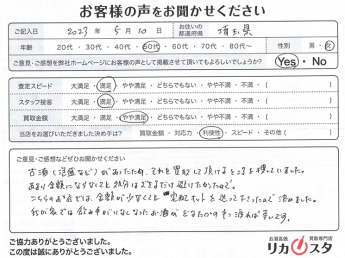 お客様の声をお聞かせください
ご記入日 2023年 5月 10日 お住いの都道府県 埼玉県
年齢 20代・30代・40代・50代・60代・70代・80代〜 性別 男・女
ご意見・ご感想を弊社ホームページにお客様の声として掲載させて頂いてもよろしいでしょうか? Yes・No
査定スピード 大満足・満足・やや満足・どちらでもない・やや不満・不満・( )
スタッフ接客 大満足・満足・やや満足・どちらでもない・やや不満・不満・( )
買取金額 大満足・満足・やや満足・どちらでもない・やや不満・不満・( )
当店をお選びいただきました決め手は? 買取金額・対応力・利便性・スピード・その他( )
ご意見・ご感想などぜひお聞かせください
古酒(洋酒など)があったため、それを買取して頂けるところを探していました。
あまり金額にならなくても処分はできるだけ避けたかったので、
こちらのお店では、金額が少なくても宅配キットを送って下さったので決めました。
我が家では飲み手がいなくなったお酒がどなたかの手に渡れば幸いです。
ご協力ありがとうございました。
この度は誠にありがとうございました。
お酒高価買取専門店
リカスタ